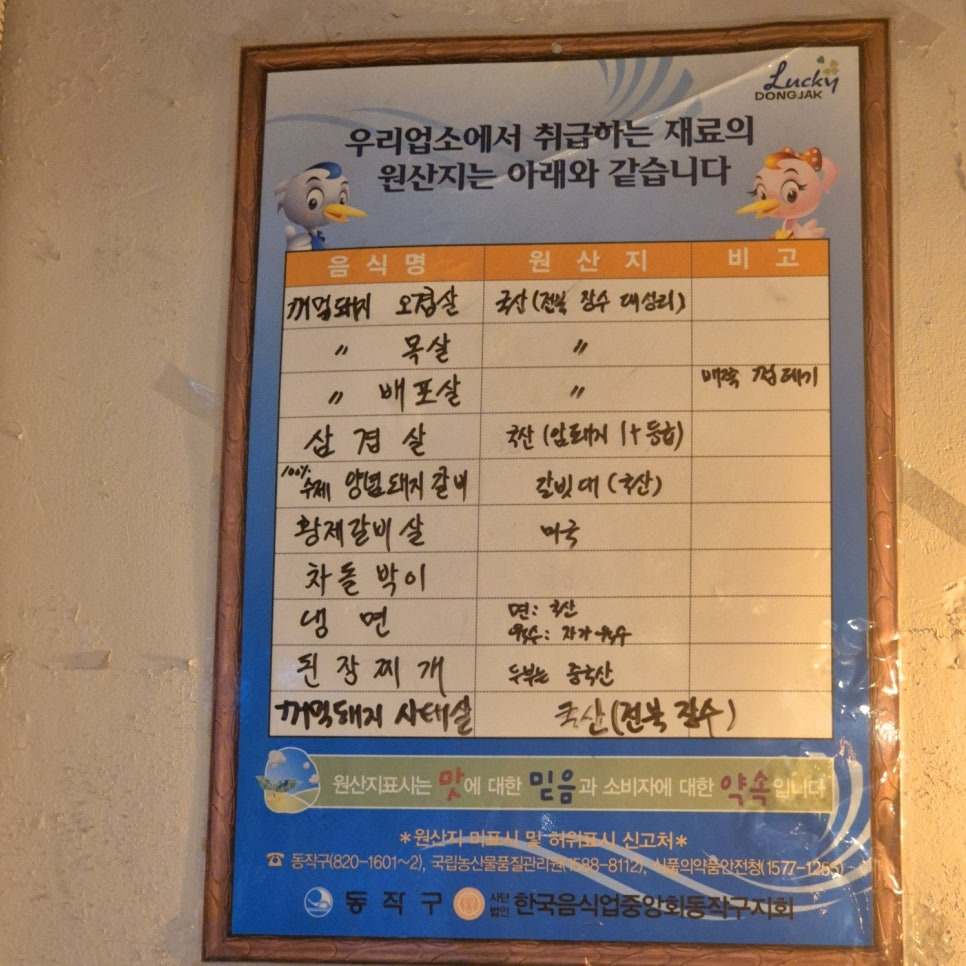 Lucky
DONGJAK
우리업소에서 취급하는 재료의
원산지는 아래와 같습니다
음식명 원산지 비고
꺼먹돼지 오겹살 국산(전북 장수 대성리)
〃 목살 〃
〃 배포살 〃 껍데기
삼겹살 국산(암돼지 1+등급)
100% 수제 양념돼지갈비 갈빗대(국산)
황제갈비살 미국
차돌박이
냉면 면: 국산
육수: 자가육수
된장찌개 두부는 중국산
꺼먹돼지 사태살 국산(전북 장수)
원산지표시는 맛에 대한 믿음과 소비자에 대한 약속입니다
*원산지 미표시 및 허위표시 신고처*
☎ 동작구(820-1601~2), 국립농산물품질관리원(1588-8112), 식품의약품안전청(1577-1255)
동작구 사단법인 한국음식업중앙회동작구지회